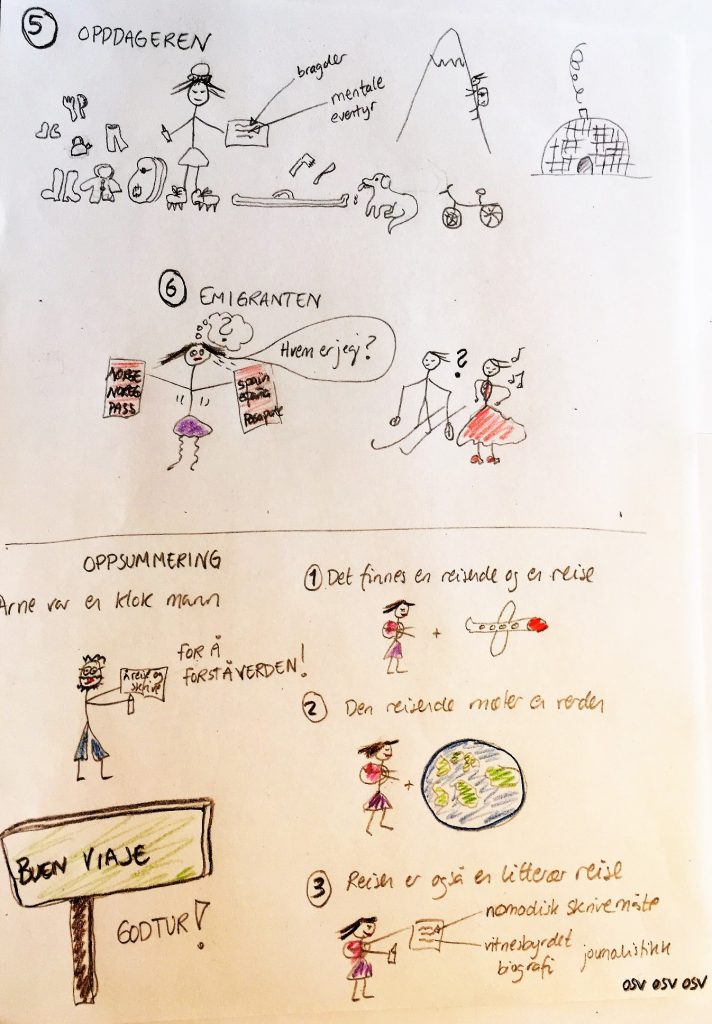 5 OPPDAGEREN
bragder
mentale
eventyr
6 EMIGRANTEN
?
Hvem er jeg?
NORGE
NOREG
PASS
Spain
españa
Pasaporte
?
OPPSUMMERING
Arne var en klok mann
å reise og
skrive
FOR Å
FORSTÅ VERDEN!
BUEN VIAJE
GOD TUR!
1 Det finnes en reisende og en reise
+
2 Den reisende møter en verden
+
3 Reisen er også en litterær reise
nomadisk skrivemåte
vitnesbyrdet
biografi
journalistikk
osv osv osv